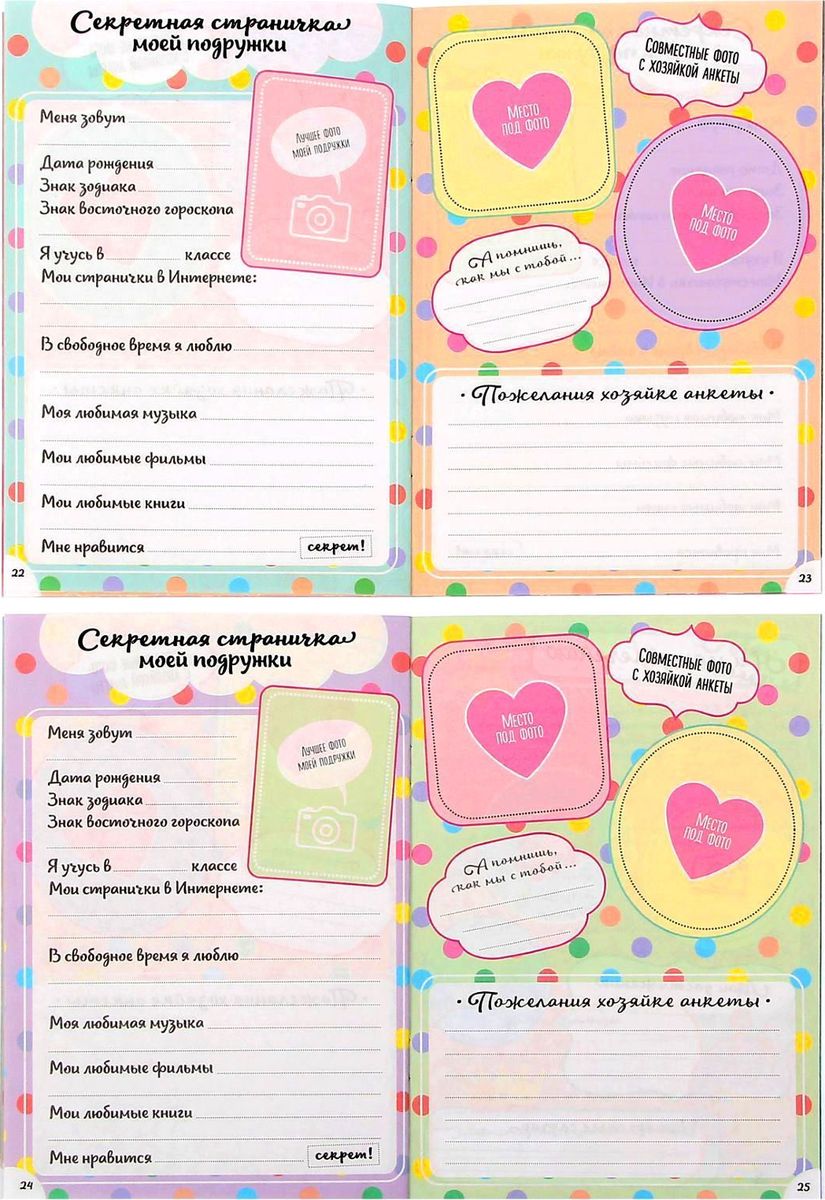 Секретная страничка
моей подружки
Меня зовут
Лучшее фото
моей подружки
Дата рождения
Знак зодиака
Знак восточного гороскопа
Я учусь в классе
Мои странички в Интернете:
В свободное время я люблю
Моя любимая музыка
Мои любимые фильмы
Мои любимые книги
Мне нравится секрет!
22
Место
под фото
Совместные фото
с хозяйкой анкеты
Место
под фото
А помнишь,
как мы с тобой...
· Пожелания хозяйке анкеты ·
23
Секретная страничка
моей подружки
Меня зовут
Лучшее фото
моей подружки
Дата рождения
Знак зодиака
Знак восточного гороскопа
Я учусь в классе
Мои странички в Интернете:
В свободное время я люблю
Моя любимая музыка
Мои любимые фильмы
Мои любимые книги
Мне нравится секрет!
24
Место
под фото
Совместные фото
с хозяйкой анкеты
Место
под фото
А помнишь,
как мы с тобой...
· Пожелания хозяйке анкеты ·
25